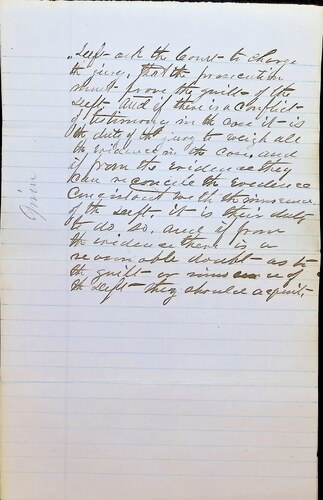 Deft ask the Court to charge
the jury, that the prosecution
must prove the guilt of the
Deft. And if there is a conflict
of testimony in the case it is
the duty of the jury to weigh all
the evidence in the case, and
if from the evidence they
can reconcile the evidence
consistent with the innocence
of the Deft it is their duty
to do so. and if from
the evidence there is a
reasonable doubt as to
the guilt or innocence of
the Deft they should acquit.
Given